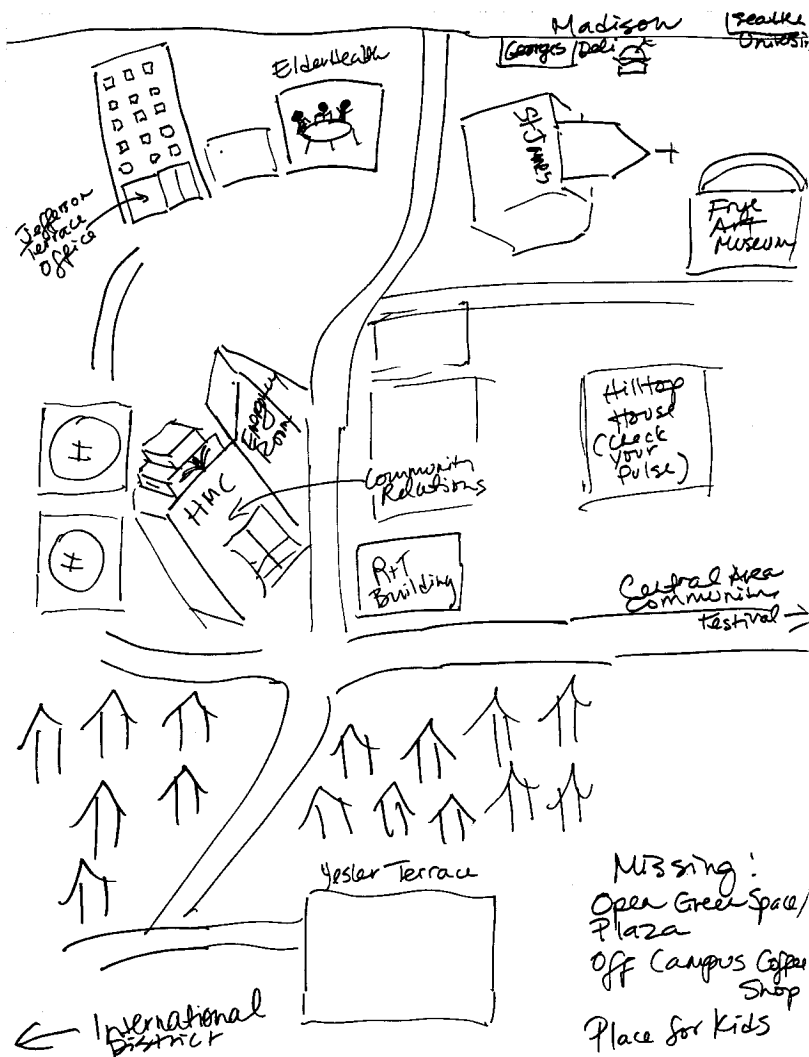 Madison
Seattle
Universi
Georges Deli
ElderHealth
St James
Jefferson
Terrace
Office
Frye
Art
Museum
Hilltop
House
(Check
your
Pulse)
Emergency
Room
H
HMC
Community
Relations
H
R+T
Building
Central Area
Community
Festival
Yesler Terrace
Missing:
Open Green Space/
Plaza
Off Campus Coffee
Shop
Place for Kids
International
District